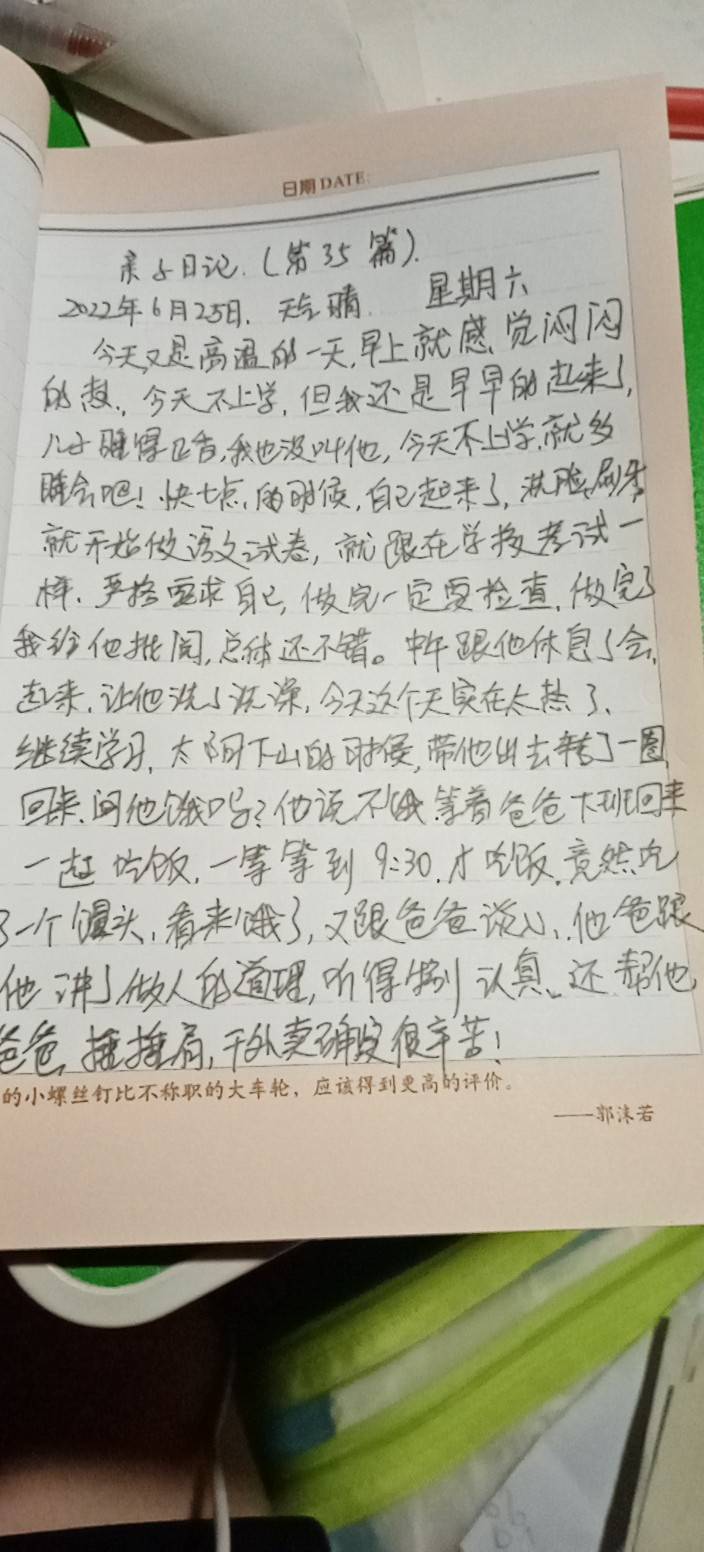 日期 DATE:
亲子日记.(第35篇).
2022年6月25日. 天气晴. 星期六
今天又是高温的一天,早上就感觉闷闷
的热. 今天不上学,但我还是早早的起来了,
儿子睡得正香,我也没叫他,今天不上学,就多
睡会吧!快七点的时候,自己起来了,洗脸刷牙
就开始做语文试卷,就跟在学校考试一
样.严格要求自己,做完一定要检查.做完了
我给他批阅,总体还不错。中午跟他休息了会,
起来.让他洗了洗澡,今天这个天实在太热了.
继续学习,太阳下山的时候,带他出去转了一圈,
回来.问他饿吗?他说不饿.等着爸爸下班回来
一起吃饭.一等等到9:30.才吃饭.竟然吃
了一个馒头,看来饿了,又跟爸爸谈心,他爸跟
他讲了做人的道理,听得特别认真.还帮他
爸爸捶捶肩,干外卖确实很辛苦!
的小螺丝钉比不称职的大车轮,应该得到更高的评价。
——郭沫若